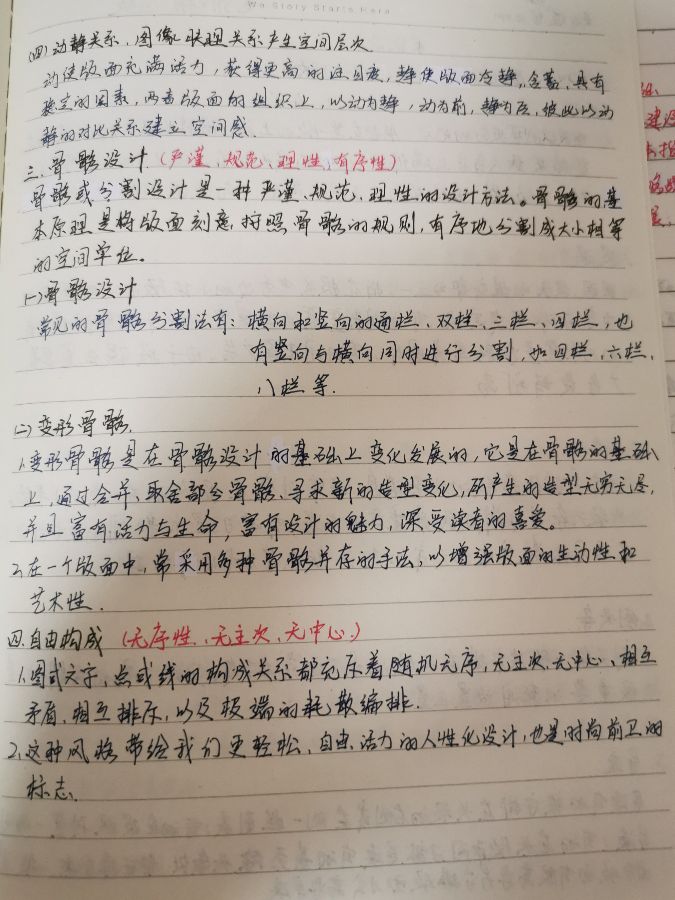 We Story Starts Here
(四)动静关系、图像肌理关系产生空间层次
动使版面充满活力,获得更高的注目度,静使版面冷静,含蓄,具有
稳定的因素,两者版面的组织上,以动为静,动为前,静为后,彼此以动
静的对比关系建立空间感.
三.骨骼设计(严谨、规范、理性、有序性)
骨骼或分割设计是一种严谨、规范、理性的设计方法。骨骼的基
本原理是将版面刻意,按照骨骼的规则,有序地分割成大小相等
的空间单位。
(一)骨骼设计
常见的骨骼分割法有:横向和竖向的通栏、双栏、三栏、四栏,也
有竖向与横向同时进行分割,如四栏、六栏、
八栏等.
(二)变形骨骼.
1.变形骨骼是在骨骼设计的基础上变化发展的,它是在骨骼的基础
上,通过合并、取舍部分骨骼、寻求新的造型变化,所产生的造型无穷无尽,
并且富有活力与生命,富有设计的魅力,深受读者的喜爱。
2.在一个版面中,常采用多种骨骼并存的手法,以增强版面的生动性和
艺术性.
四.自由构成(无序性、无主次、无中心.)
1.图式文字,点或线的构成关系都充斥着随机无序,无主次,无中心、相互
矛盾,相互排斥,以及极端的耗散编排.
2.这种风格带给我们更轻松,自由、活力的人性化设计,也是时尚前卫的
标志.